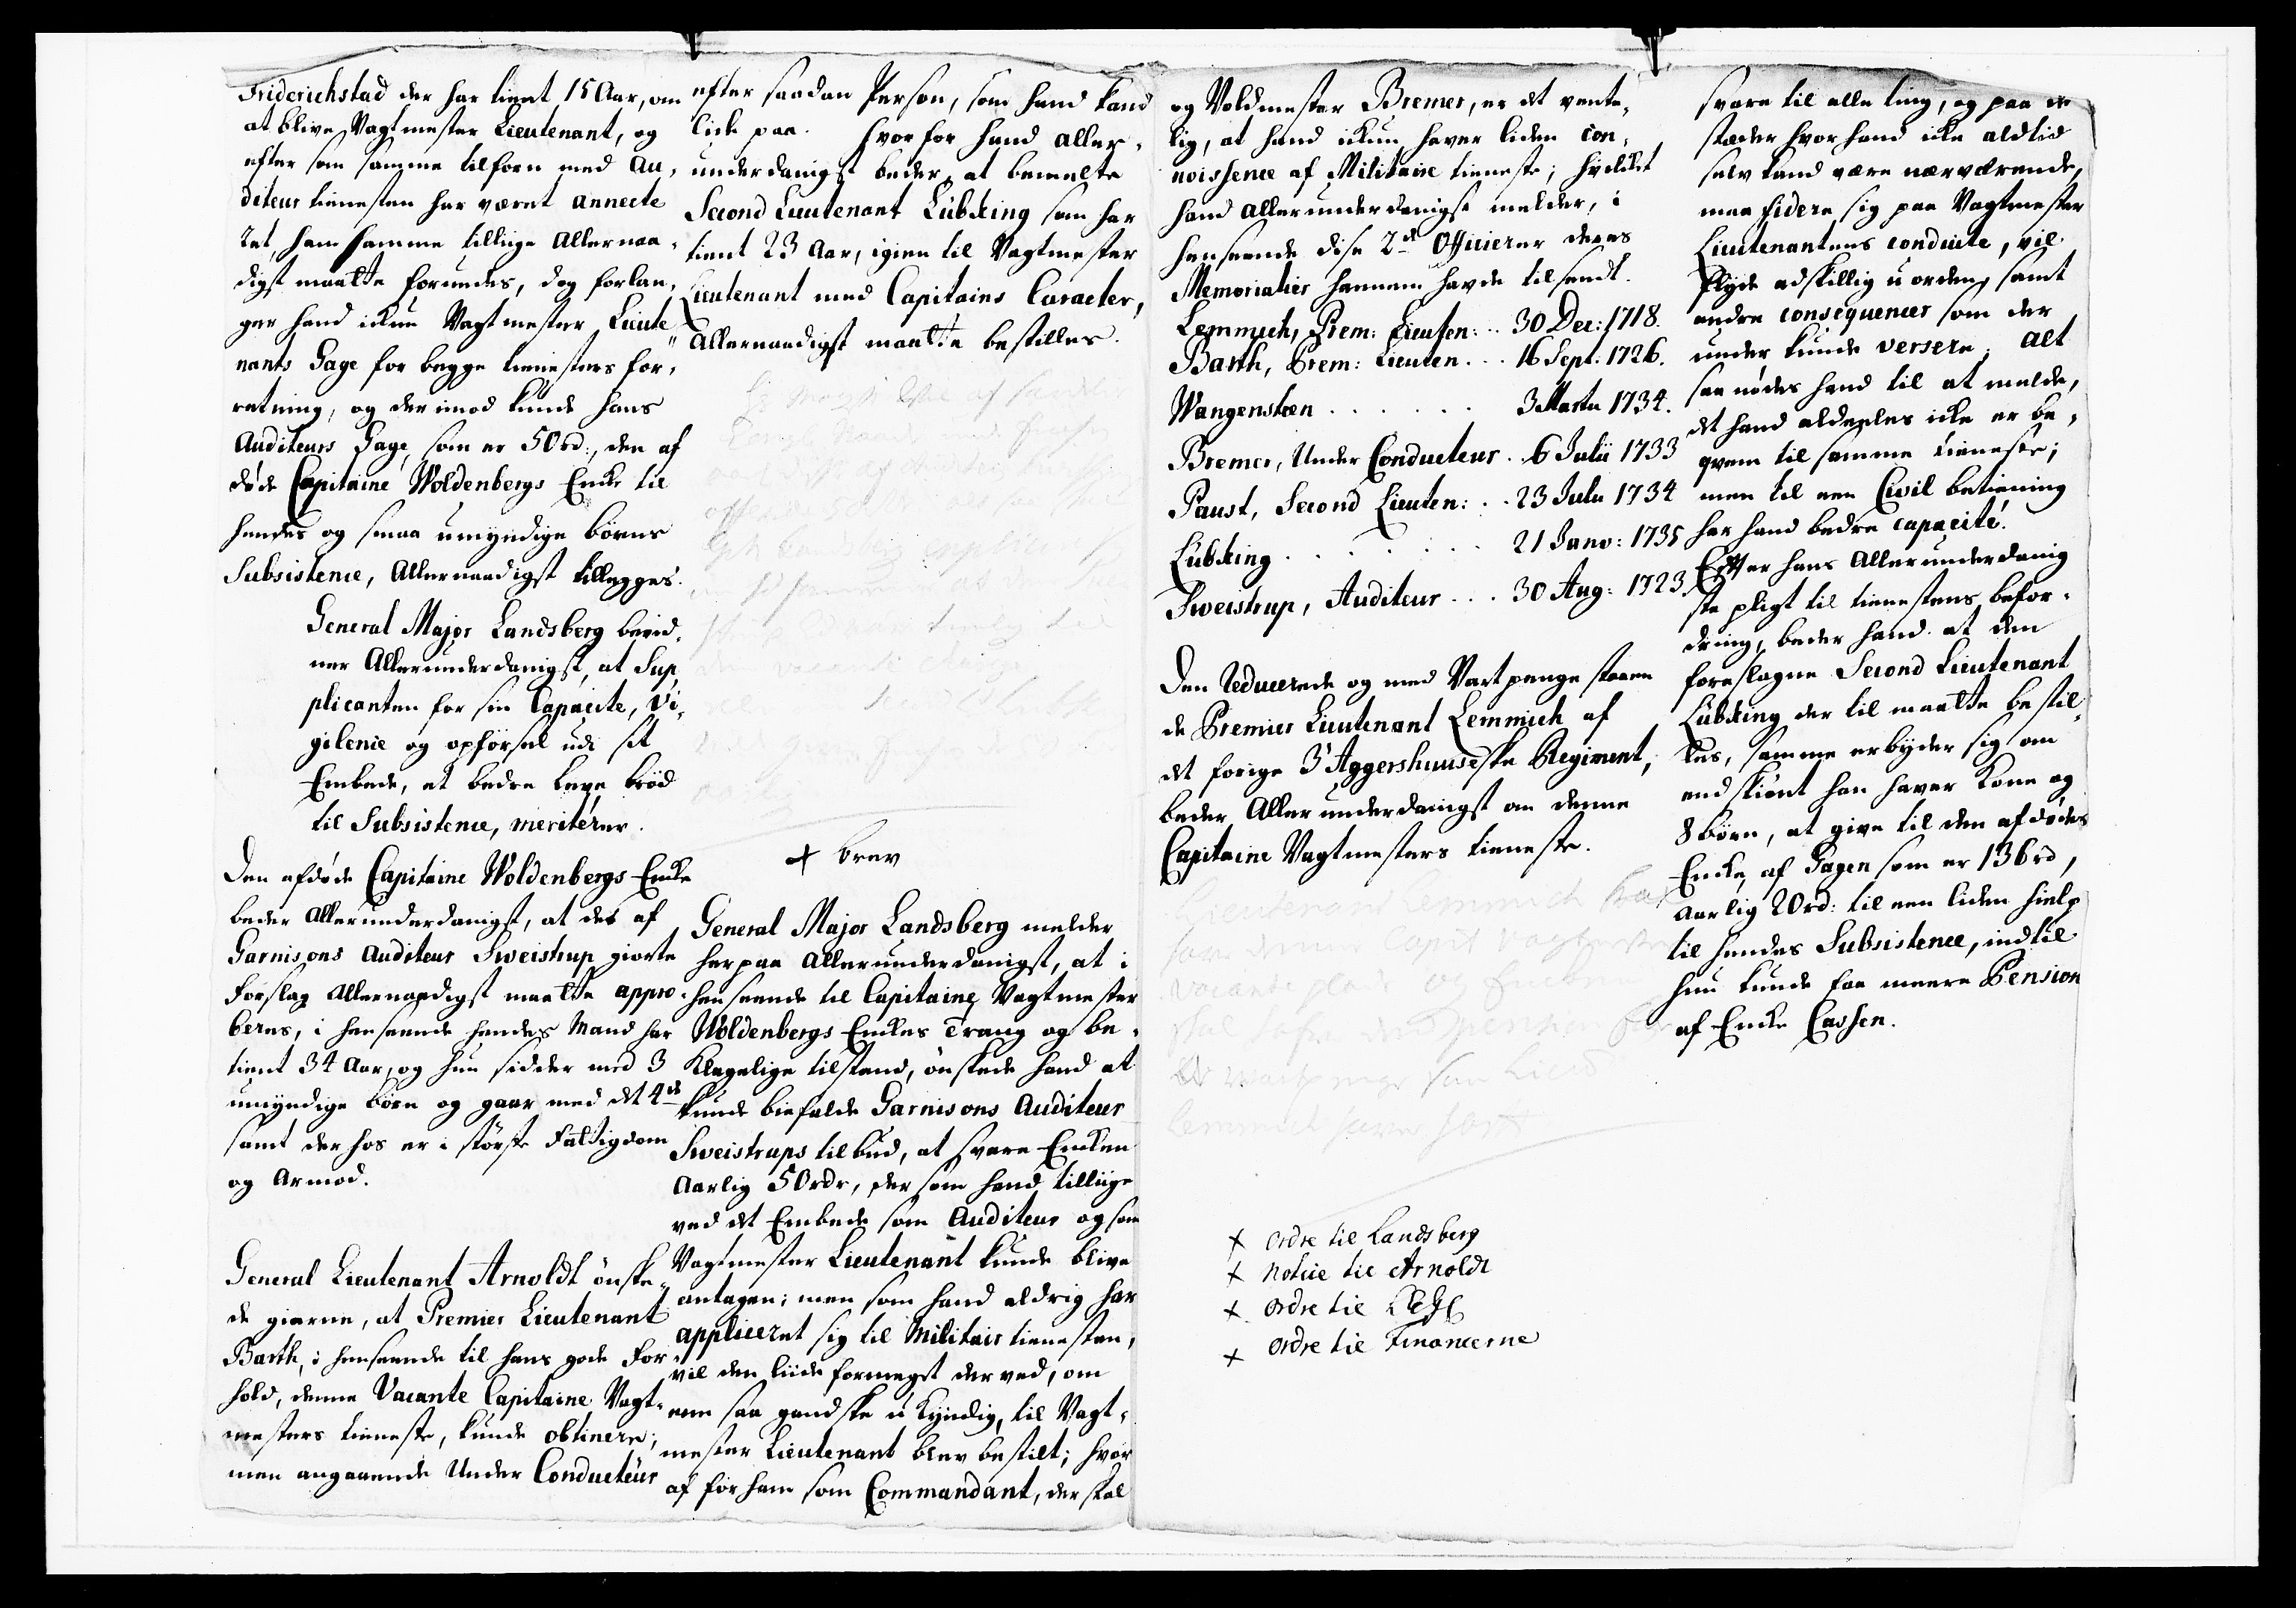 Friderichstad der har tient 15 Aar, om
at blive Vagtmester Lieutenant, og
efter som samme tilforn med Au,
diteur tienesten har været annecte
ret, ham samme tilliige Allernaa,
digst maatte forundes, dog forlan,
ger hand ickun Vagtmester Lieute
nants Gage for begge tienesters for,
retning, og der imod kunde hans
Auditeurs Gage, som er 50 rd:, den af
døde Capitaine Woldenbergs Encke til
hendes og smaa umyndige børns
Subsistence, Allernaadigst tillegges.
General Major Landsberg bevid,
ner Allerunderdanigst, at Sup,
plicanten for sin Capacite, Vi,
gilence og opførsel udi sit
Embede, et bedre Leve brød
til Subsistence, meriterer.
Den afdøde Capitaine Woldenbergs Encke
beder Allerunderdanigst, at det af
Garnisons Auditeur Sweistrup giorte
Forslag Allernaadigst maatte appro,
beres, i henseende hendes Mand har
tient 34 Aar, og hun sidder med 3
umyndige børn og gaar med det 4de
samt der hos er i største Fattigdom
og Armod.
General Lieutenant Arnoldt ønske,
de gierne, at Premier Lieutenant
Barth, i henseende til hans gode For,
hold, denne Vacante Capitaine Vagt,
mesters tieneste, kunde obtinere;
men angaaende Under Conducteur
efter saadan Person, som hand kand
lide paa. Hvorfor hand Aller,
underdanigst beder, at bemelte
Second Lieutenant Lübking som har
tient 23 Aar, igien til Vagtmester
Lieutenant med Capitains Caracter,
Allernaadigst maatte bestilles.
+ brev
General Major Landsberg melder
herpaa Allerunderdanigst, at i
henseende til Capitaine Vagtmester
Woldenbergs Enckes Trang og be,
klagelige tilstand, ønskede hand at
kunde biefalde Garnisons Auditeur
Sweistrups tilbud, at svare Encken
Aarlig 50 rdr, der som hand tilliige
ved det Embede som Auditeur og som
Vagtmester Lieutenant kunde blive
antagen; men som hand aldrig har
appliceret sig til Militair tienesten,
vil den liide formeget der ved, om
een saa gandske ukyndig, til Vagt,
mester Lieutenant blev bestilt; hvor
af for ham som Commandant, der skal
og Voldmester Bremer, er det vente,
lig, at hand ickun haver liden Con,
noissence af Militaire tieneste; hvilket
hand allerunderdanigst melder, i
henseende disse 2de Officierer deres
Memorialier hannem havde tilsendt.
Lemmich, Prem: Lieuten: .. 30 Dec: 1718.
Barth, Prem: Lieuten ... 16 Sept: 1726.
Wangensteen ...... 3 Martii 1734.
Bremer, Under Conducteur . 6 Julii 1733
Paust, Second Lieuten: .. 23 Julii 1734
Lübking ....... 21 Janv: 1735
Sweistrup, Auditeur ... 30 Aug: 1723.
Den Reducerede og med Vartpenge staaen
de Premier Lieutenant Lemmich af
det forige 3die Aggershuusiske Regiment,
beder Allerunderdanigst om denne
Capitaine Vagtmesters tieneste.
+ ordre til Landsberg
+ notice til Arnoldt
+ ordre til
+ ordre til Financerne
svare til alle ting, og paa
steder hvor hand icke altid
selv kand være nærværende,
maa fidere sig paa Vagtmester
Lieutenantens conduite, vil
flyde adskillig uorden, samt
andre consequencer som der
under kunde versere. Alt
saa nødes hand til at melde,
at hand aldeeles icke er be,
qvem til samme tieneste;
men til een Civil betiening
har hand bedre capacité.
Efter hans Allerunderdanig
ste pligt til tienestens befor,
dring, beder hand at den
foreslagne Second Lieutenant
Lübking der til maatte bestil,
les, samme erbyder sig om
endskiønt han haver Kone og
8 børn, at give til den afdødes
Encke, af Gagen som er 136 rd,
Aarlig 20 rd: til een liden hielp
til hendes Subsistence, indtil
hun kunde faa meere Pension
af Encke Cassen.